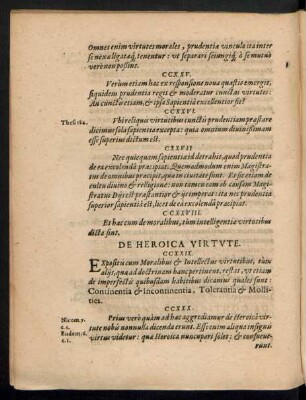 Omnes enim virtutes morales, prudentiæ vincula ita inter
se nexa ligataq́; tenentur: vt separari seiungiq́; à se mutuò
verò non possint.
CCXXV.
Verum etiam hac ex responsione noua quæstio emergit,
siquidem prudentia reget & moderatur cunctas virtutes:
An cunctis etiam, & ipsa Sapientia excellentior sit?
CCXXVI.
Thesi 182.
Vbi reliquis virtutibus cunctis prudentiam præstare
dicimus sola sapientia excepta: quia omnium diuinissimam
esse superius dictum est.
CCXXVII
Nec quicquam sapientiæ id detrahit, quod prudentia
de ea excolenda præcipiat. Quemadmodum enim Magistra-
tus de omnibus præcipit, quæ in ciuitate sunt. Et sic etiam de
cultu diuino & religione: non tamen eam ob causam Magi-
stratus Dijs est præstantior & ijs imperat: ita nec prudentia
superior sapientia est, licet de ea excolenda præcipiat.
CCXXVIII.
Et hæc cum de moralibus, tùm intelligentiæ virtutibus
dicta sint.
DE HEROICA VIRTVTE.
CCXXIX.
Expositis cum Moralibus & Intellectus virtutibus, tùm
alijs, quæ ad doctrinam hanc pertinent, restat, vt etiam
de imperfectis quibusdam habitibus dicamus quales sunt:
Continentia & Incontinentia, Tolerantia & Molli-
ties.
CCXXX.
Nicom. 7.
c. 1.
Eudem. 6.
c. 1.
Prius verò quàm ad hæc aggrediamur de Heroica vir-
tute nobis nonnulla dicenda erunt. Est enim aliqua insignis
virtus videtur: quæ Heroica nuncupari solet; & consueue-
runt.